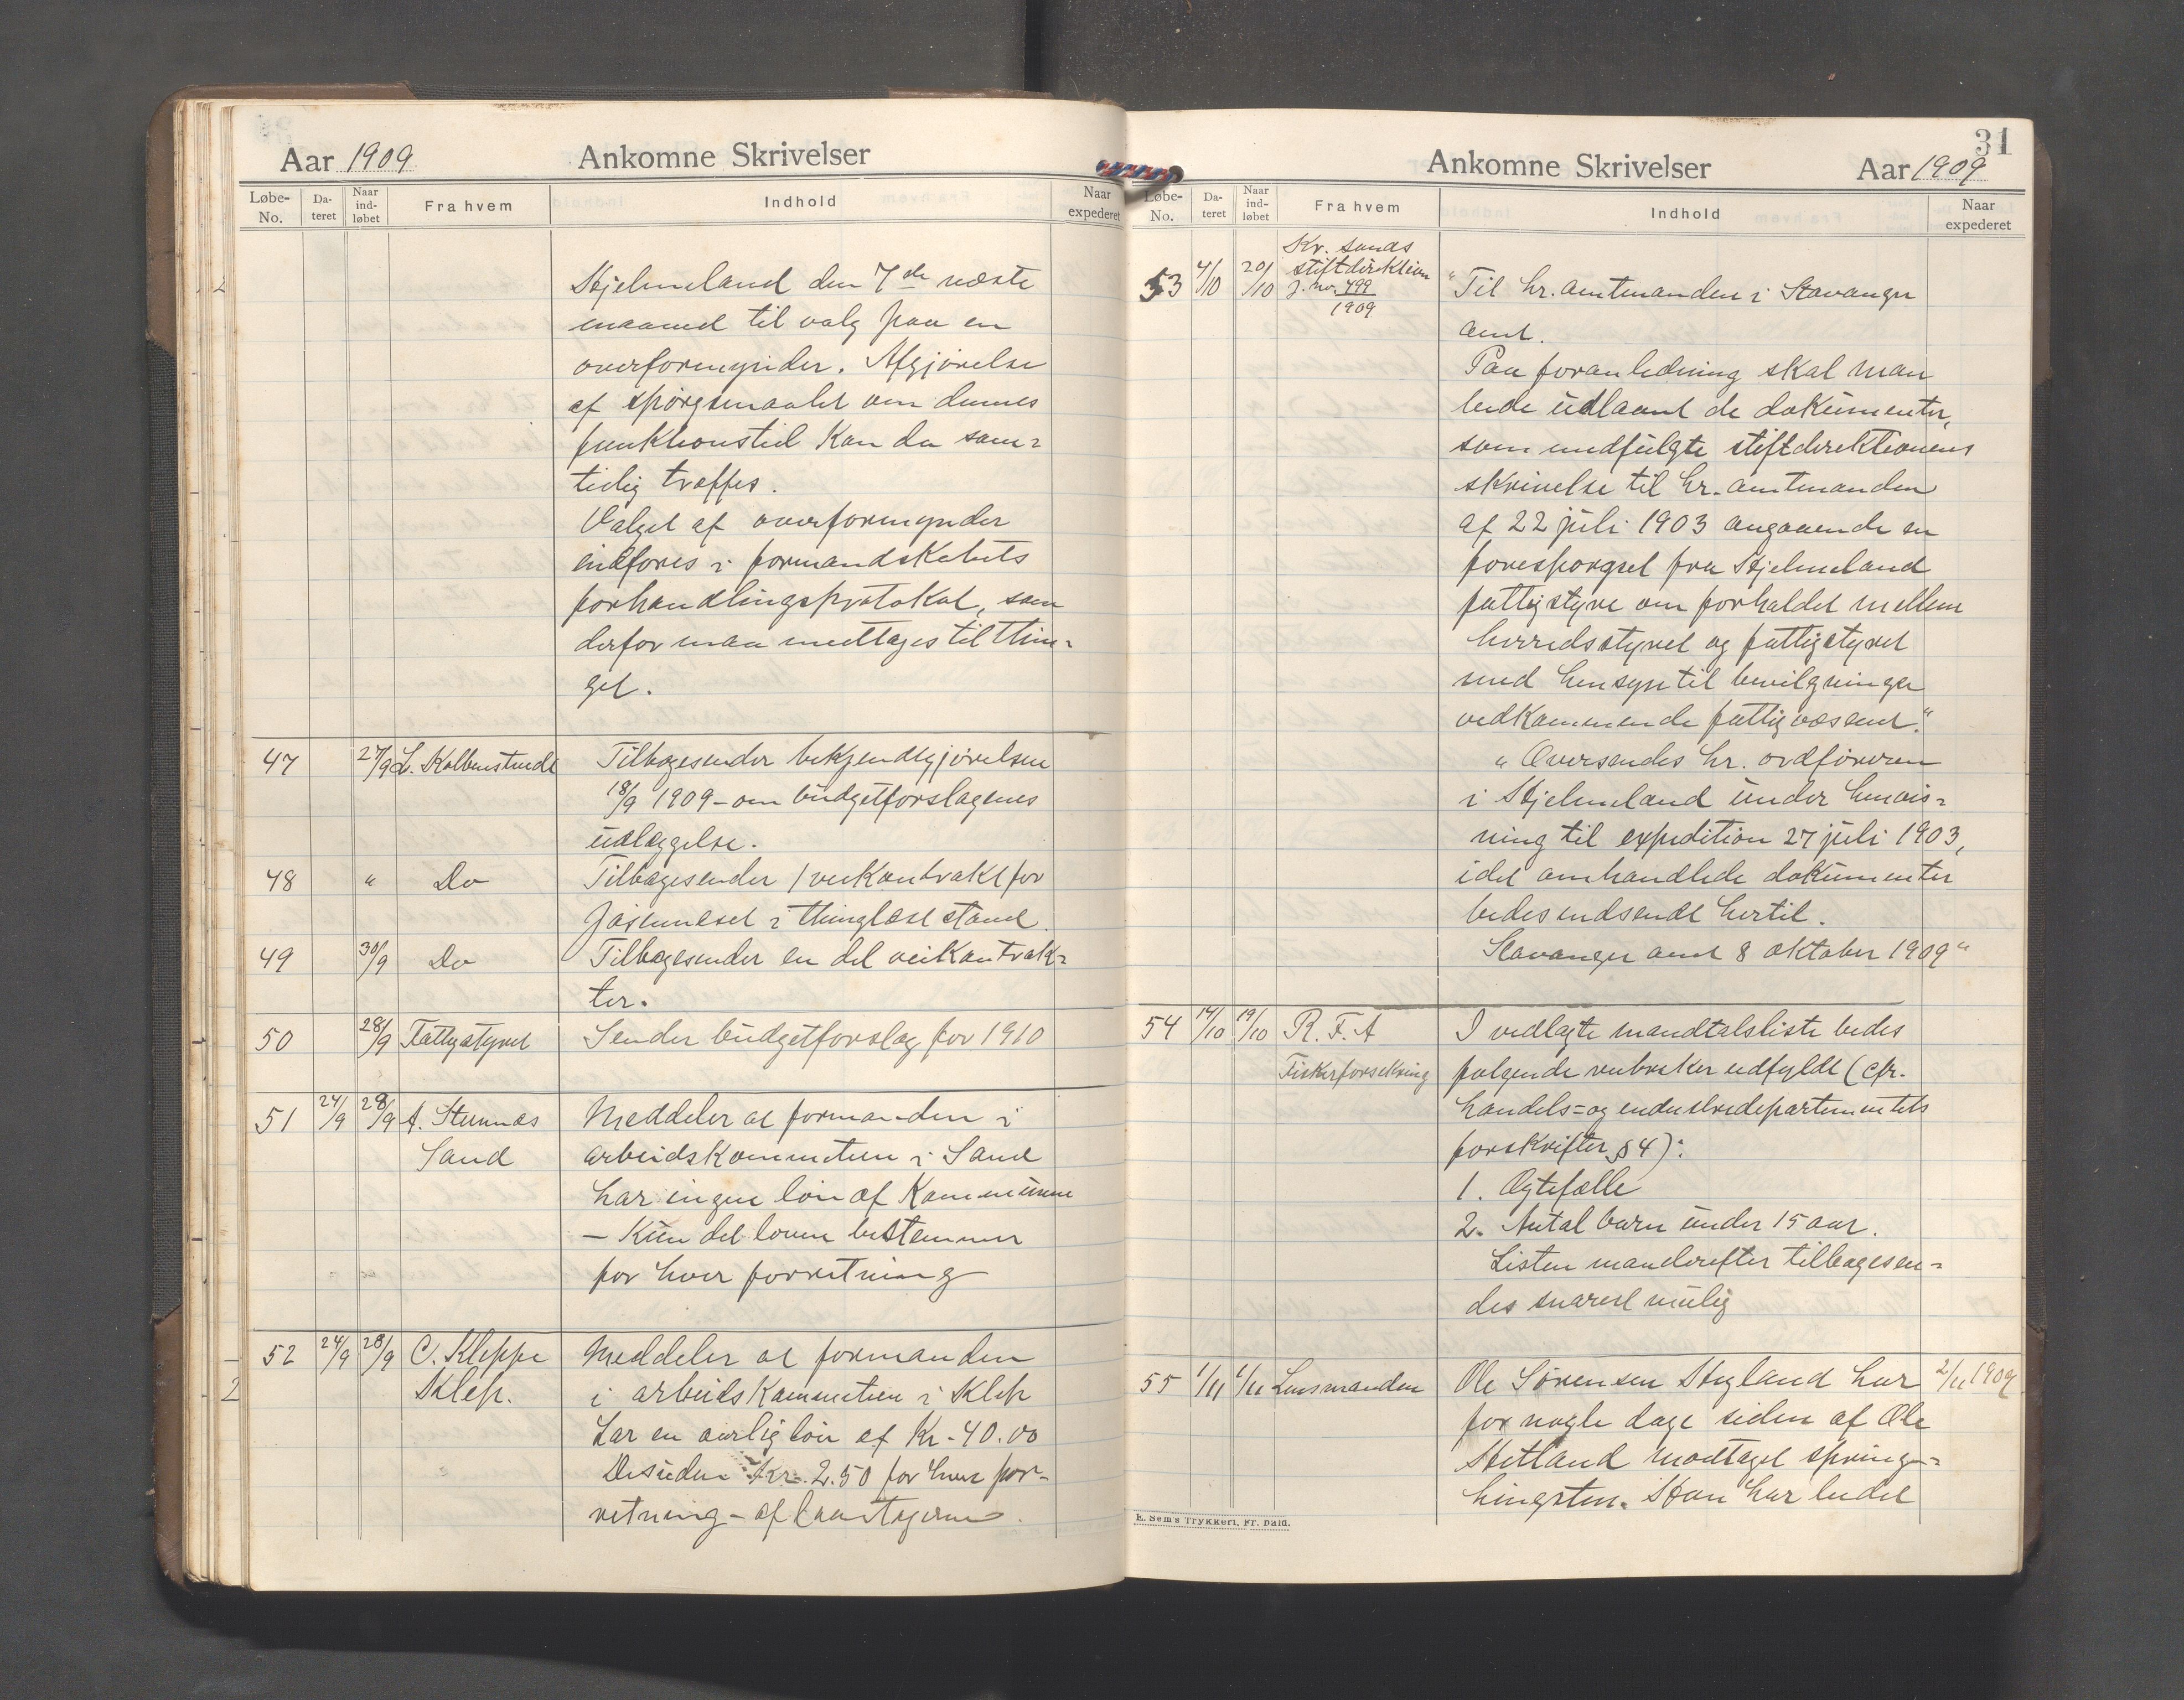 Aar 1909 Ankomne Skrivelser
Løbe-No. Dateret Naar indløbet Fra hvem Indhold Naar expederet
Hjelmeland den 7de næste
maaned til valg paa en
overformynder. Afgjørelse
af spørgsmaalet om dennes
funktionstid kan da sam=
tidig træffes.
Valget af overformynder
indføres i formandskabets
forhandlingsprotokol, som
derfor maa medtages til thin=
get.
47 27/9 L. Kolbenstvedt Tilbagesender bekjendtgjørelsen
18/9 1909 - om budgetforslagenes
udlæggelse.
48 " Do Tilbagesender 1 veikontrakt for
Jøsenneset i thinglæst stand.
49 30/9 Do Tilbagesender en del veikontrak=
ter.
50 28/9 Fattigstyret Sender budgetforslag for 1910
51 24/9 28/9 A. Steinnes Meddeler at formanden i
Sand arbeidskommitteen i Sand
har ingen løn af Kommunen
- Kun det loven bestemmer
for hver forretning
52 24/9 28/9 O. Kleppe Meddeler at formanden
Klep. i arbeidskommitteen i Klep
har en aarlig løn af Kr. 40.00
Desuden Kr. 2.50 for hver for-
retning - af laantagerne.
31
Ankomne Skrivelser Aar 1909
Løbe-No. Dateret Naar indløbet Fra hvem Indhold Naar expederet
53 4/10 20/10 Kr. sands
stiftdirektion
j. no. 499
1909
"Til hr. amtmanden i Stavanger
amt.
Paa foranledning skal man
bede udlaant de dokumenter,
som medfulgte stiftdirektionens
skrivelse til hr. amtmanden
af 22 juli 1903 angaaende en
forespørgsel fra Hjelmeland
fattigstyre om forholdet mellem
herredsstyret og fattigstyret
med hensyn til bevilgninger
vedkommende fattigvæsenet."
"Oversendes hr. ordføreren
i Hjelmeland under henvis=
ning til expedition 27 juli 1903,
idet omhandlede dokumenter
bedes indsendt hertil.
Stavanger amt 8 oktober 1909"
54 14/10 19/10 R. F. A I vedlagte mandtalsliste bedes
Fiskerforsikring følgende rubrikker udfyldt (cfr.
handels= og industridepartementets
forskrifter § 4):
1. Ægtefælle
2. Antal barn under 15 aar.
Listen maa derefter tilbagesen=
des snarest mulig
55 1/11 1/11 Lensmanden Ole Sørensen Hegland har 2/11 1909
for nogle dage siden af Ole
Hetland modtaget spring=
hingsten. Han har ledet
E. Sem's Trykkeri, Fr.hald.